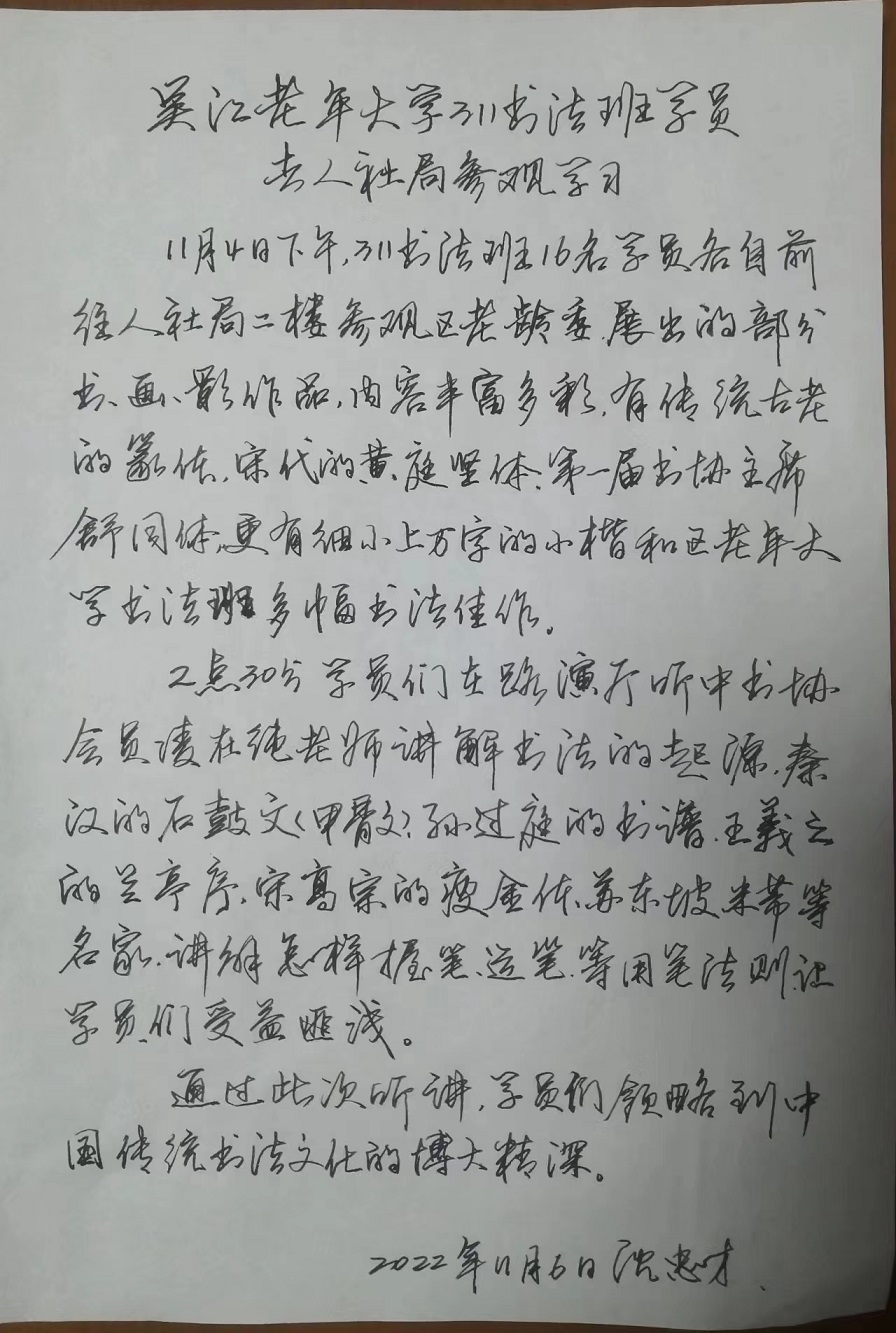 吴江老年大学311书法班学员
去人社局参观学习
11月4日下午,311书法班16名学员各自前
往人社局二楼参观区老龄委展出的部分
书、画、影作品,内容丰富多彩,有传统古老
的篆体,宋代的黄庭坚体、第一届书协主席
舒同体,更有细小上万字的小楷和区老年大
学书法班多幅书法佳作。
2点30分学员们在路演厅听中书协
会员凌在纯老师讲解书法的起源,秦
汉的石鼓文(甲骨文)、孙过庭的书谱、王羲之
的兰亭序、宋高宗的瘦金体、苏东坡米芾等
名家、讲解怎样握笔、运笔、等用笔法则,让
学员们受益匪浅。
通过此次听讲,学员们领略到中
国传统书法文化的博大精深。
2022年11月6日沈忠才